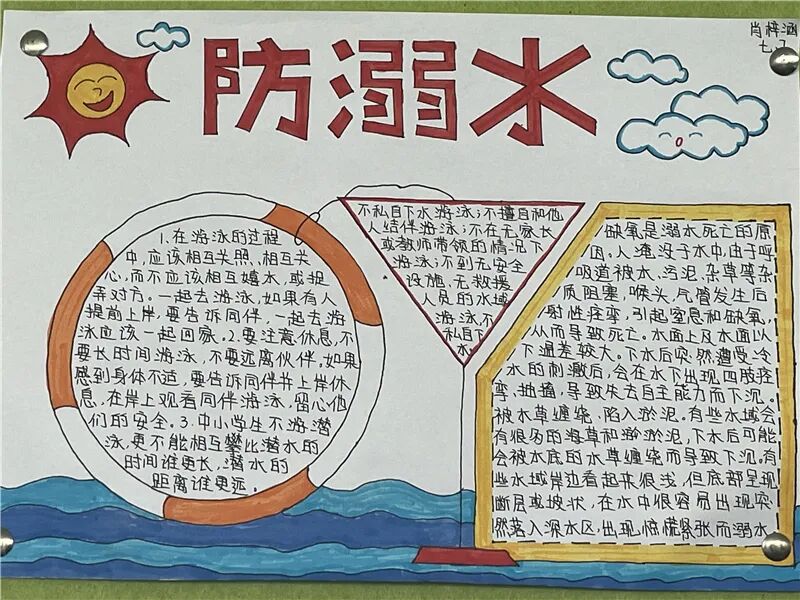 防溺水
肖梓涵
1.在游泳的过程
中,应该相互关照、相互关
心,而不应该相互嬉水,或捉
弄对方。一起去游泳,如果有人
提前上岸,要告诉同伴,一起去游
泳应该一起回家。2.要注意休息,不
要长时间游泳,不要远离伙伴。如果
感到身体不适,要告诉同伴并上岸休
息,在岸上观看同伴游泳,留心他
们的安全。3.中小学生不游潜
泳,更不能相互攀比潜水的
时间谁更长,潜水的
距离谁更远。
不私自下水游泳;不擅自和他
人结伴游泳;不在无家长
或教师带领的情况下
游泳;不到无安全
设施、无救援
人员的水域
游泳;不
私自下
水
缺氧是溺水死亡的原
因。人淹没于水中,由于呼
吸道被水、污泥、杂草等杂
质阻塞,喉头、气管发生后
射性痉挛,引起窒息和缺氧,
从而导致死亡。水面上及水面以
下温差较大。下水后突然遭受冷
水的刺激后,会在水下出现四肢痉
挛、抽搐,导致失去自主能力而下沉。
被水草缠绕、陷入淤泥。有些水域会
有很多的海草和淤泥,下水后可能
会被水底的水草缠绕而导致下沉。有
些水域岸边看起来很浅,但底部呈现
断层或坡状,在水中很容易出现突
然落入深水区,出现惊慌紧张而溺水